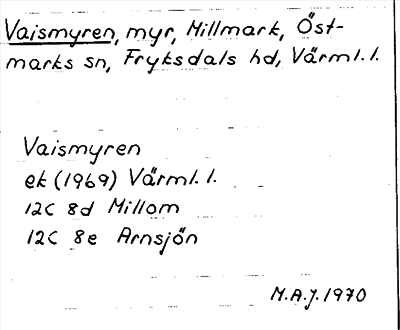 Vaismyren, myr, Millmark, Öst-
marks sn, Fryksdals hd, Värml. l.
Vaismyren
ek (1969) Värml. l.
12C 8d Millom
12C 8e Arnsjön
M.A.J. 1970